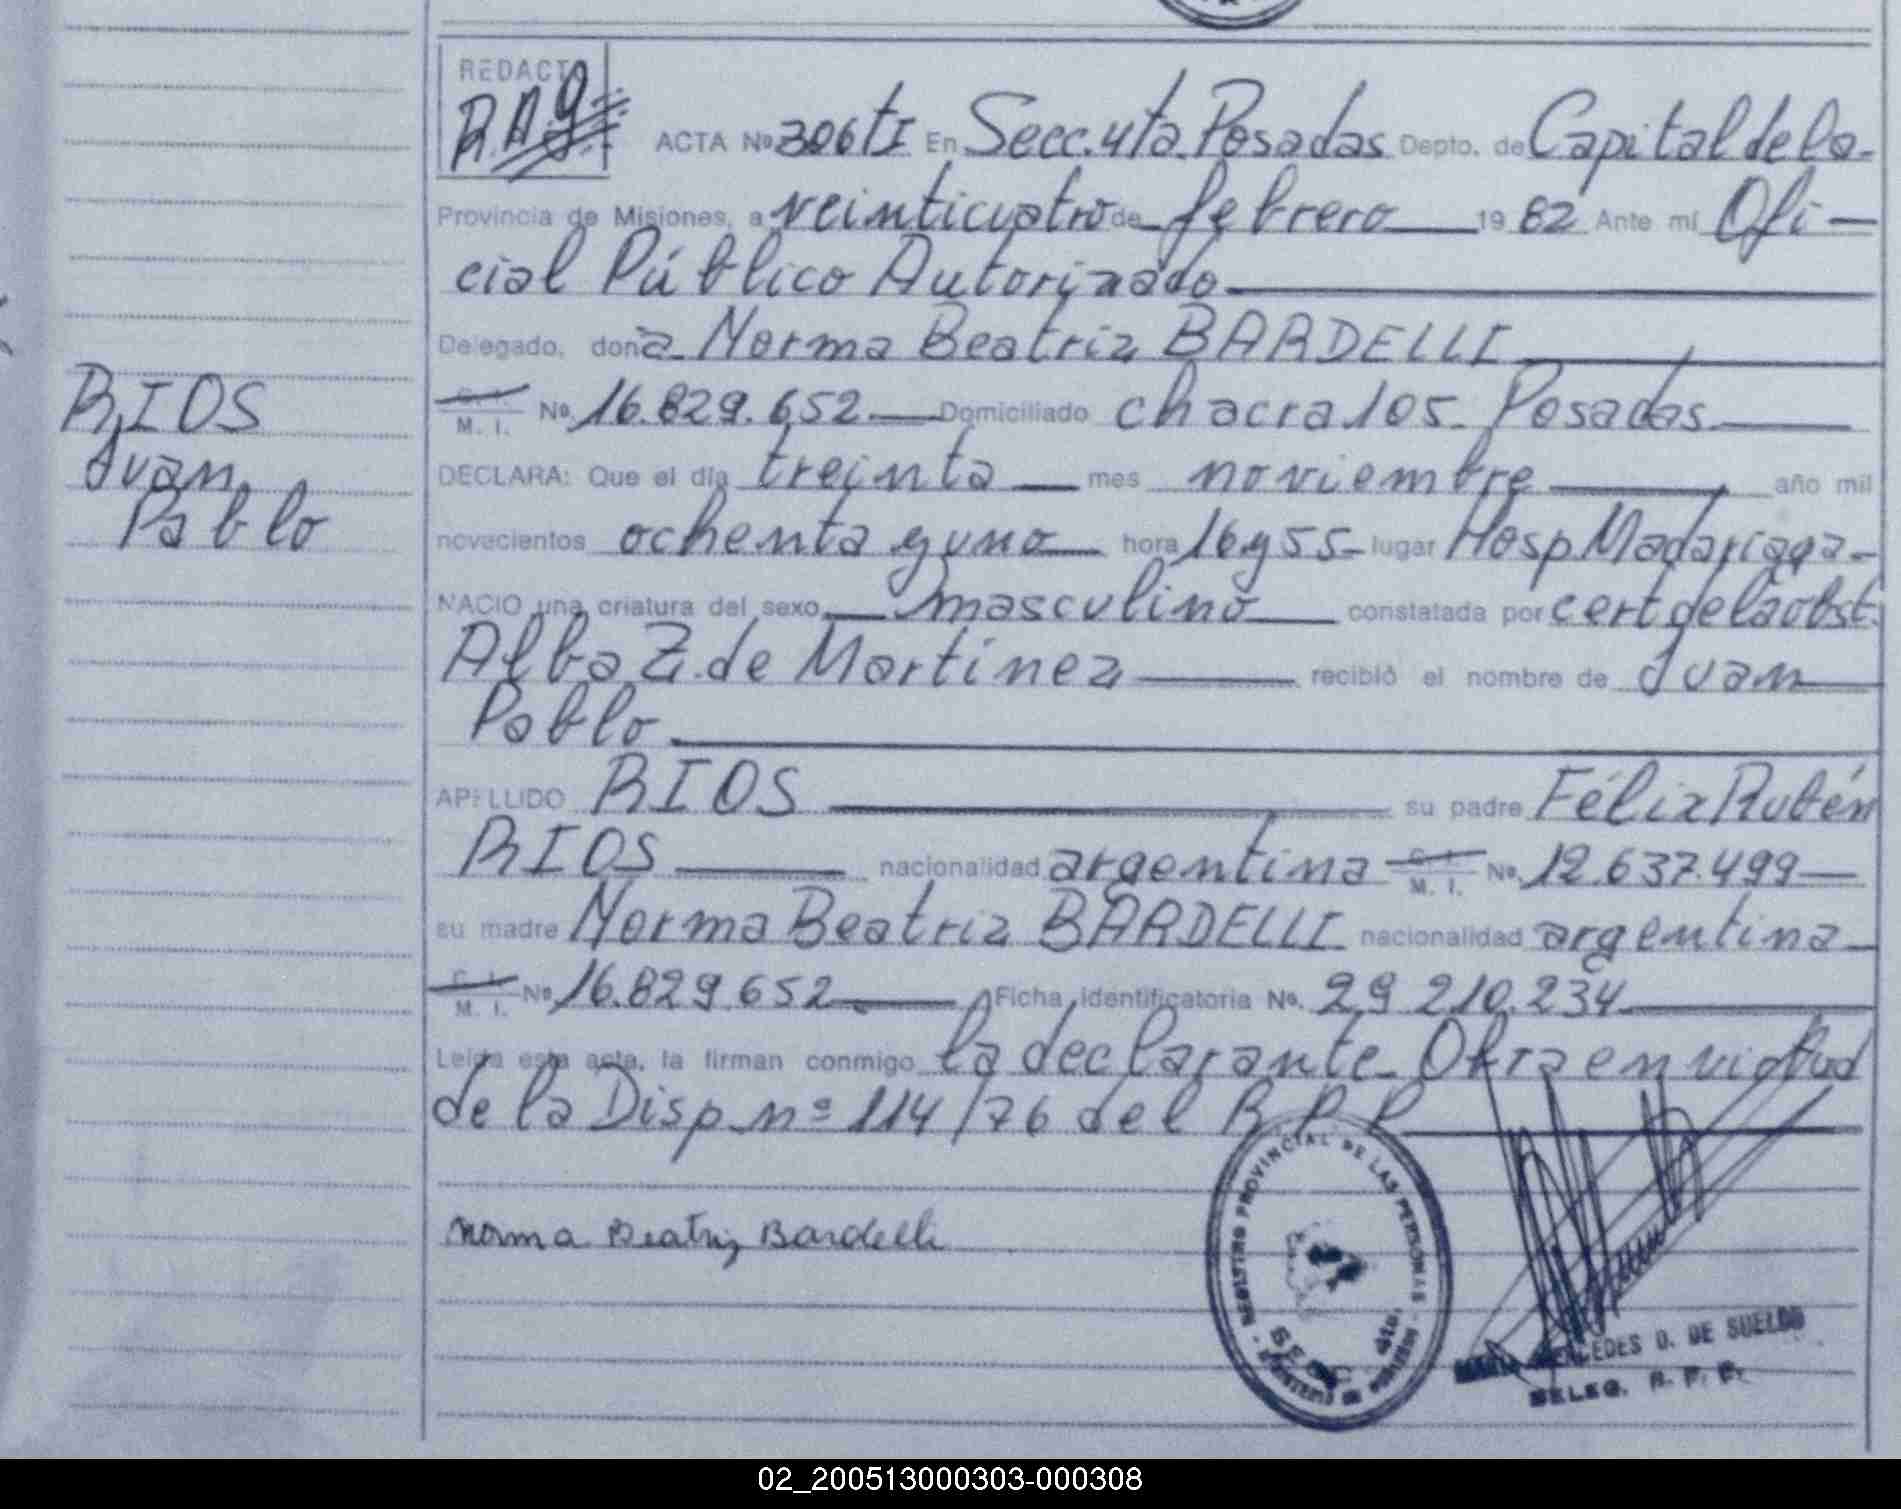 REDACTO
R.A.G.
ACTA Nº 306 tI En Secc. 4ta. Posadas Depto. de Capital de la-
Provincia de Misiones, a veinticuatro de febrero 19 82 Ante mí Ofi-
cial Público Autorizado
Delegado, doña Norma Beatriz BARDELLI
C. I. M. I. Nº. 16.829.652 Domiciliado chacra 105- Posadas
RIOS
Juan
Pablo
DECLARA: Que el día treinta mes noviembre año mil
novecientos ochenta y uno hora 16 y 55 lugar Hosp. Madariaga-
NACIO una criatura del sexo masculino constatada por cert de la obst.
Alba Z. de Martinez recibió el nombre de Juan
Pablo
APELLIDO RIOS su padre Félix Rubén
RIOS nacionalidad argentina C. I. M. I. Nº. 12.637.499
su madre Norma Beatriz BARDELLI nacionalidad argentina
C. I. M. I. Nº 16.829.652 Ficha identificatoria Nº. 29.210.234
Leída esta acta, la firman conmigo la declarante- Obra en virtud
de la Disp. nº 114/76 del R.P.P.
Norma Beatriz Bardelli
REGISTRO PROVINCIAL DE LAS PERSONAS - MINISTERIO DE GOBIERNO
SECC. 4ta.
MERCEDES D. DE SUELDO
DELEG. R. P. P.
02_200513000303-000308